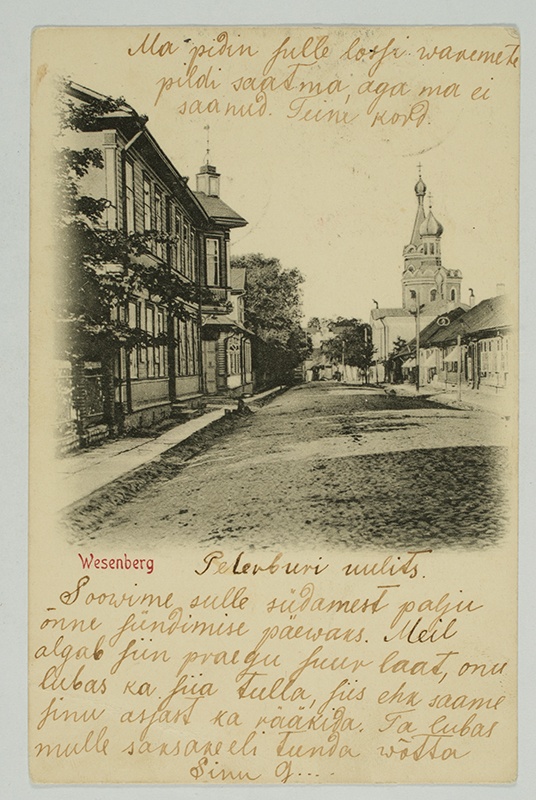 Ma pidin sulle lossi waremete
pildi saatma, aga ma ei
saanud. Teine kord.
Wesenberg
Peterburi uulits.
Soowime sulle südamest palju
õnne sündimise päewaks. Meil
algab siin praegu suur laat, onu
lubas ka siia tulla, siis ehk saame
sinu asjast ka rääkida. Ta lubas
mulle saksakeeli tunda wõtta
Sinu G....